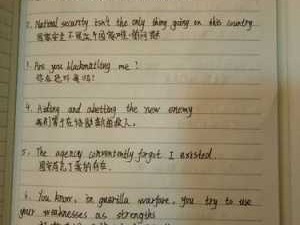 2. National security isn't the only thing going on this country
国家安全不是这个国家唯一的问题
3. Are you blackmailing me !
你在绝吓我吗!
4. Aiding and abetting the new enemy
我们等于在协助新的敌人.
5. The agency conveniently forgot I existed.
国安局忘了我的存在.
6. You know, in guerilla warfare, you try to use
your weaknesses as strengths